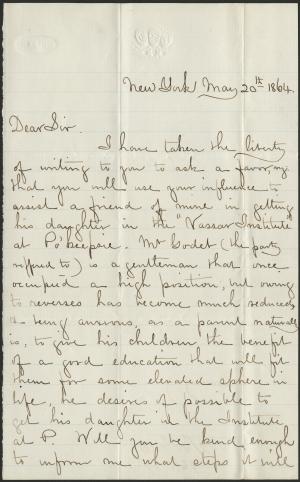 New York May 20th 1864.
Dear Sir.
I have taken the liberty
of writing to you to ask a favor, viz
that you will use your influence to
assist a friend of mine in getting
his daughter in the "Vassar Institute"
at Po'keepsie. Mr Godet (the party
reffered to) is a gentleman that once
occupied a high position, but owing
to reverses has become much reduced
& being anxious, as a parent naturally
is, to give his children the benefit
of a good education that will fit
them for some elevated sphere in
life, he desires if possible to
get his daughter in the Institute
at P. Will you be kind enough
to inform me what steps it will